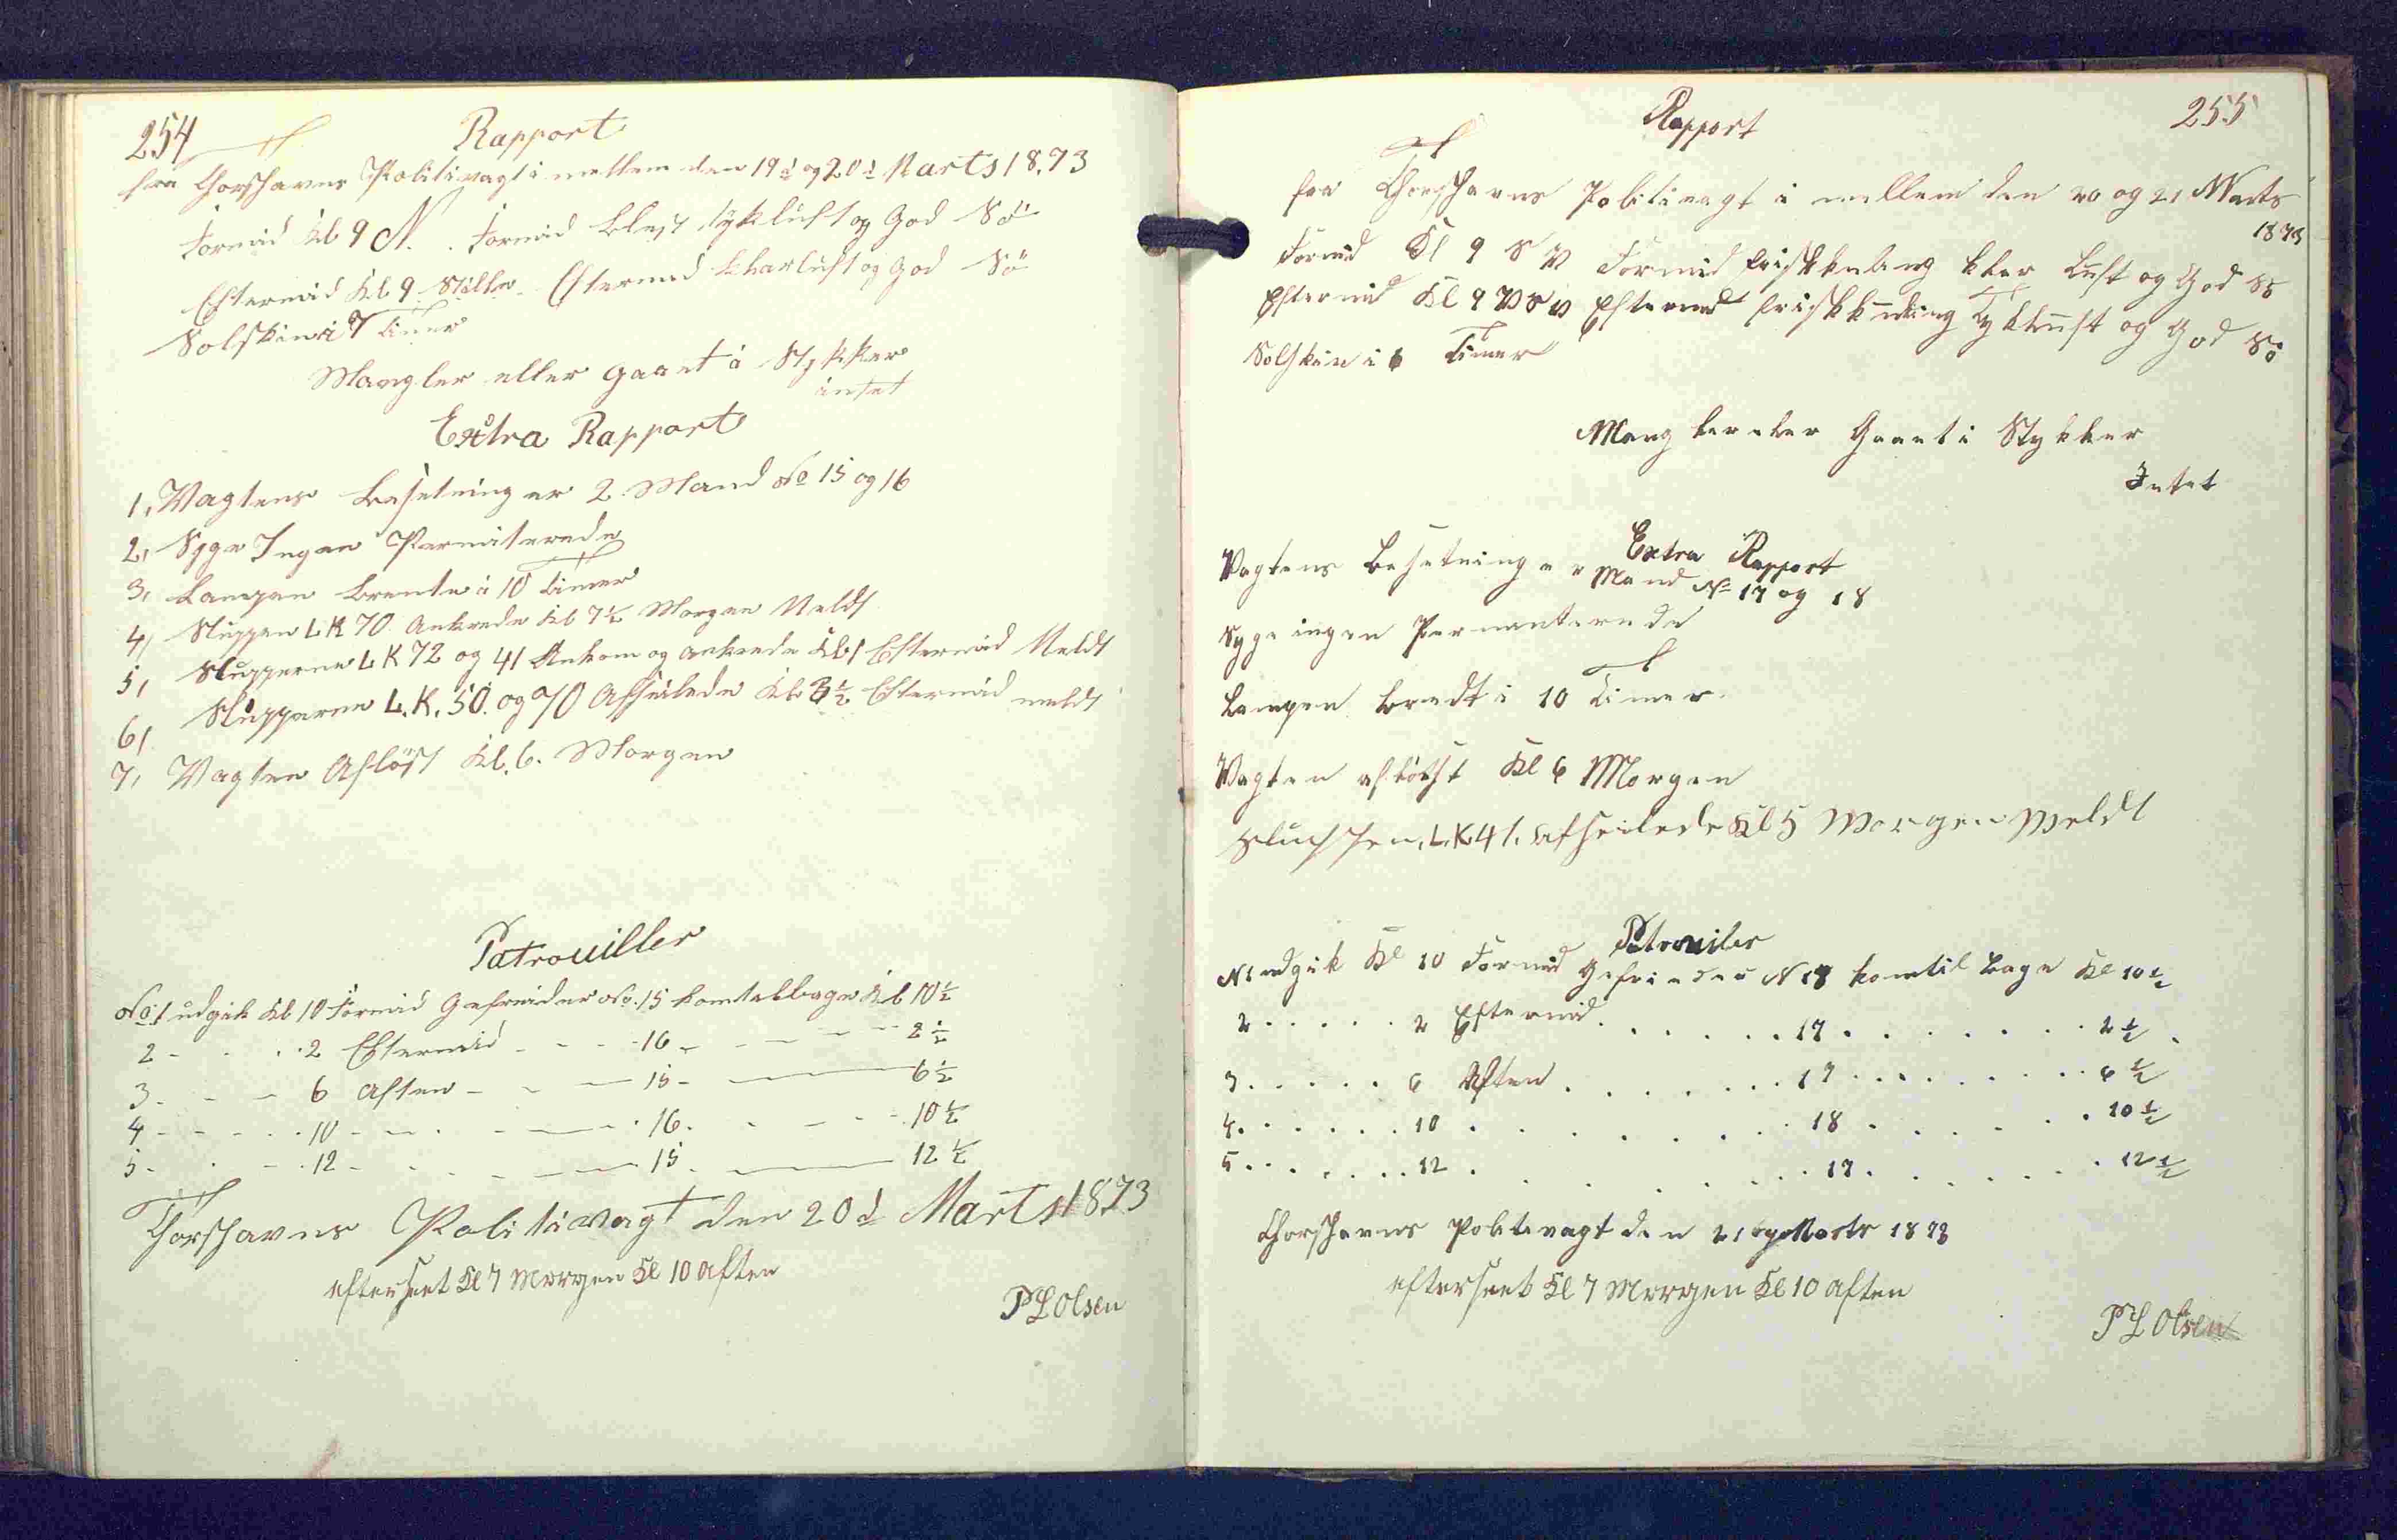 254
Rapport
fra Thorshavns Politivagt i mellem den 19d og 20d Marts 1873
Formid Kl 9 N. Formid Blest tykluft og God Sö
Eftermid Kl. 9 Stille Eftermid Kharluft og God Sö
Solskin i 7 Timer
Mangler eller gaaet i Stykker
intet
Extra Rapport
1, Vagtens Besetning er 2 Mand No 15 og 16
2, Syge Ingen Permiterede
3, Lampen Brente i 10 Timer
4, Sluppen L K 70 Ankrede Kl 7½ Morgen Meldt
5, Slupperne L K 72 og 41 Ankom og ankrede Kl 1 Eftermid Meldt
6, Slupperne L. K. 50. og 70 Afseilede Kl 3½ Eftermid meldt
7, Vagten Aflöst Kl. 6. Morgen
Patrouiller
No 1 udgik Kl 10 Formid Gefreider No. 15 komtelbage Kl 10½
2 - - - 2 Eftermid - - - 16 - - - 2½
3 - - - 6 Aften - - - 15 - - - 6½
4 - - - 10 - - - 16 - - - 10½
5 - - - 12 - - - 15 - - - 12½
Thorshavns Politivagt den 20d Marts 1873
efterseet Kl 7 Morgen Kl 10 Aften
P L Olsen
255
Rapport
fra Thorshavns Politivagt i mellem den 20 og 21 Marts
1873
Formid Kl 9 S V Formid friskkuling klar Luft og God Sö
Eftermid Kl 9 V S V Eftermid friskkuling Tykluft og God Sö
Solskin i 6 Timer
Mangler eler Gaaet i Stykker
Intet
Extra Rapport
Vagtens Besetning er Mand No 17 og 18
Syge ingen Permenterede
Lampen Brendt i 10 Timer
Vagten aflöest Kl 6 Morgen
L. K 41. Afseilede Kl 5 Morgen Meldt
Patrouiler
N 1 udgik Kl 10 Formid Gefrieder N 18 komtil Bage Kl 10½
2 . . . . . 2 Eftermid . . . . . 17 . . . . . 2½
3 . . . . . 6 Aften . . . . . 17 . . . . . 6½
4 . . . . . 10 . . . . . 18 . . . . . 10½
5 . . . . . 12 . . . . . 17 . . . . . 12½
Thorshavns Politivagt den 21 Marts 1873
efterseet Kl 7 Morgen Kl 10 Aften
P L Olsen